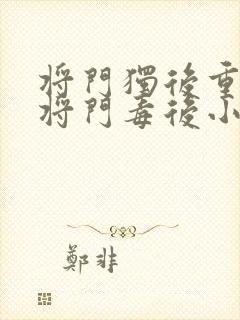 將門獨後重
將門毒後小
鄭非